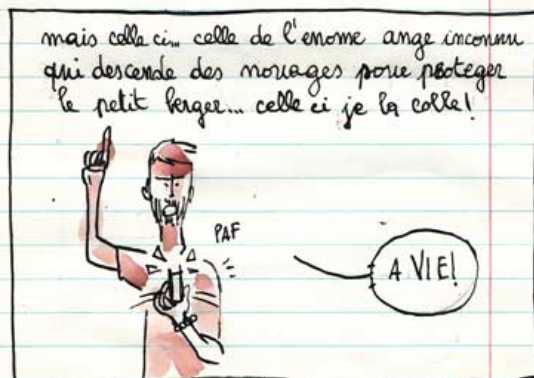 mais celle ci... celle de l'enome ange inconnu
qui descende des nouages pour proteger
le petit berger... celle ci je la colle!
PAF
A VIE!